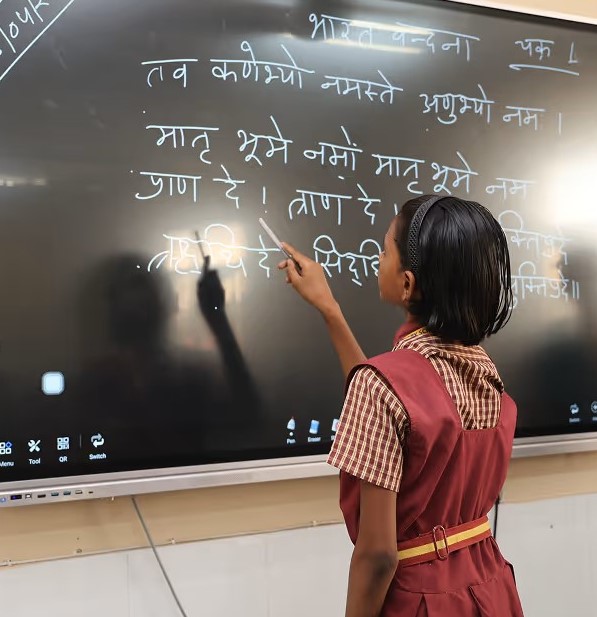 भारत वन्दना चक्र 1
तव कणेभ्यो नमस्ते अणुभ्यो नम ।
मातृ भूमे नमों मातृ भूमे नम
प्राण दे ! त्राण दे !
दे सिद्धि
मुक्तिप्रदे॥
Menu Tool QR Switch Pen Eraser